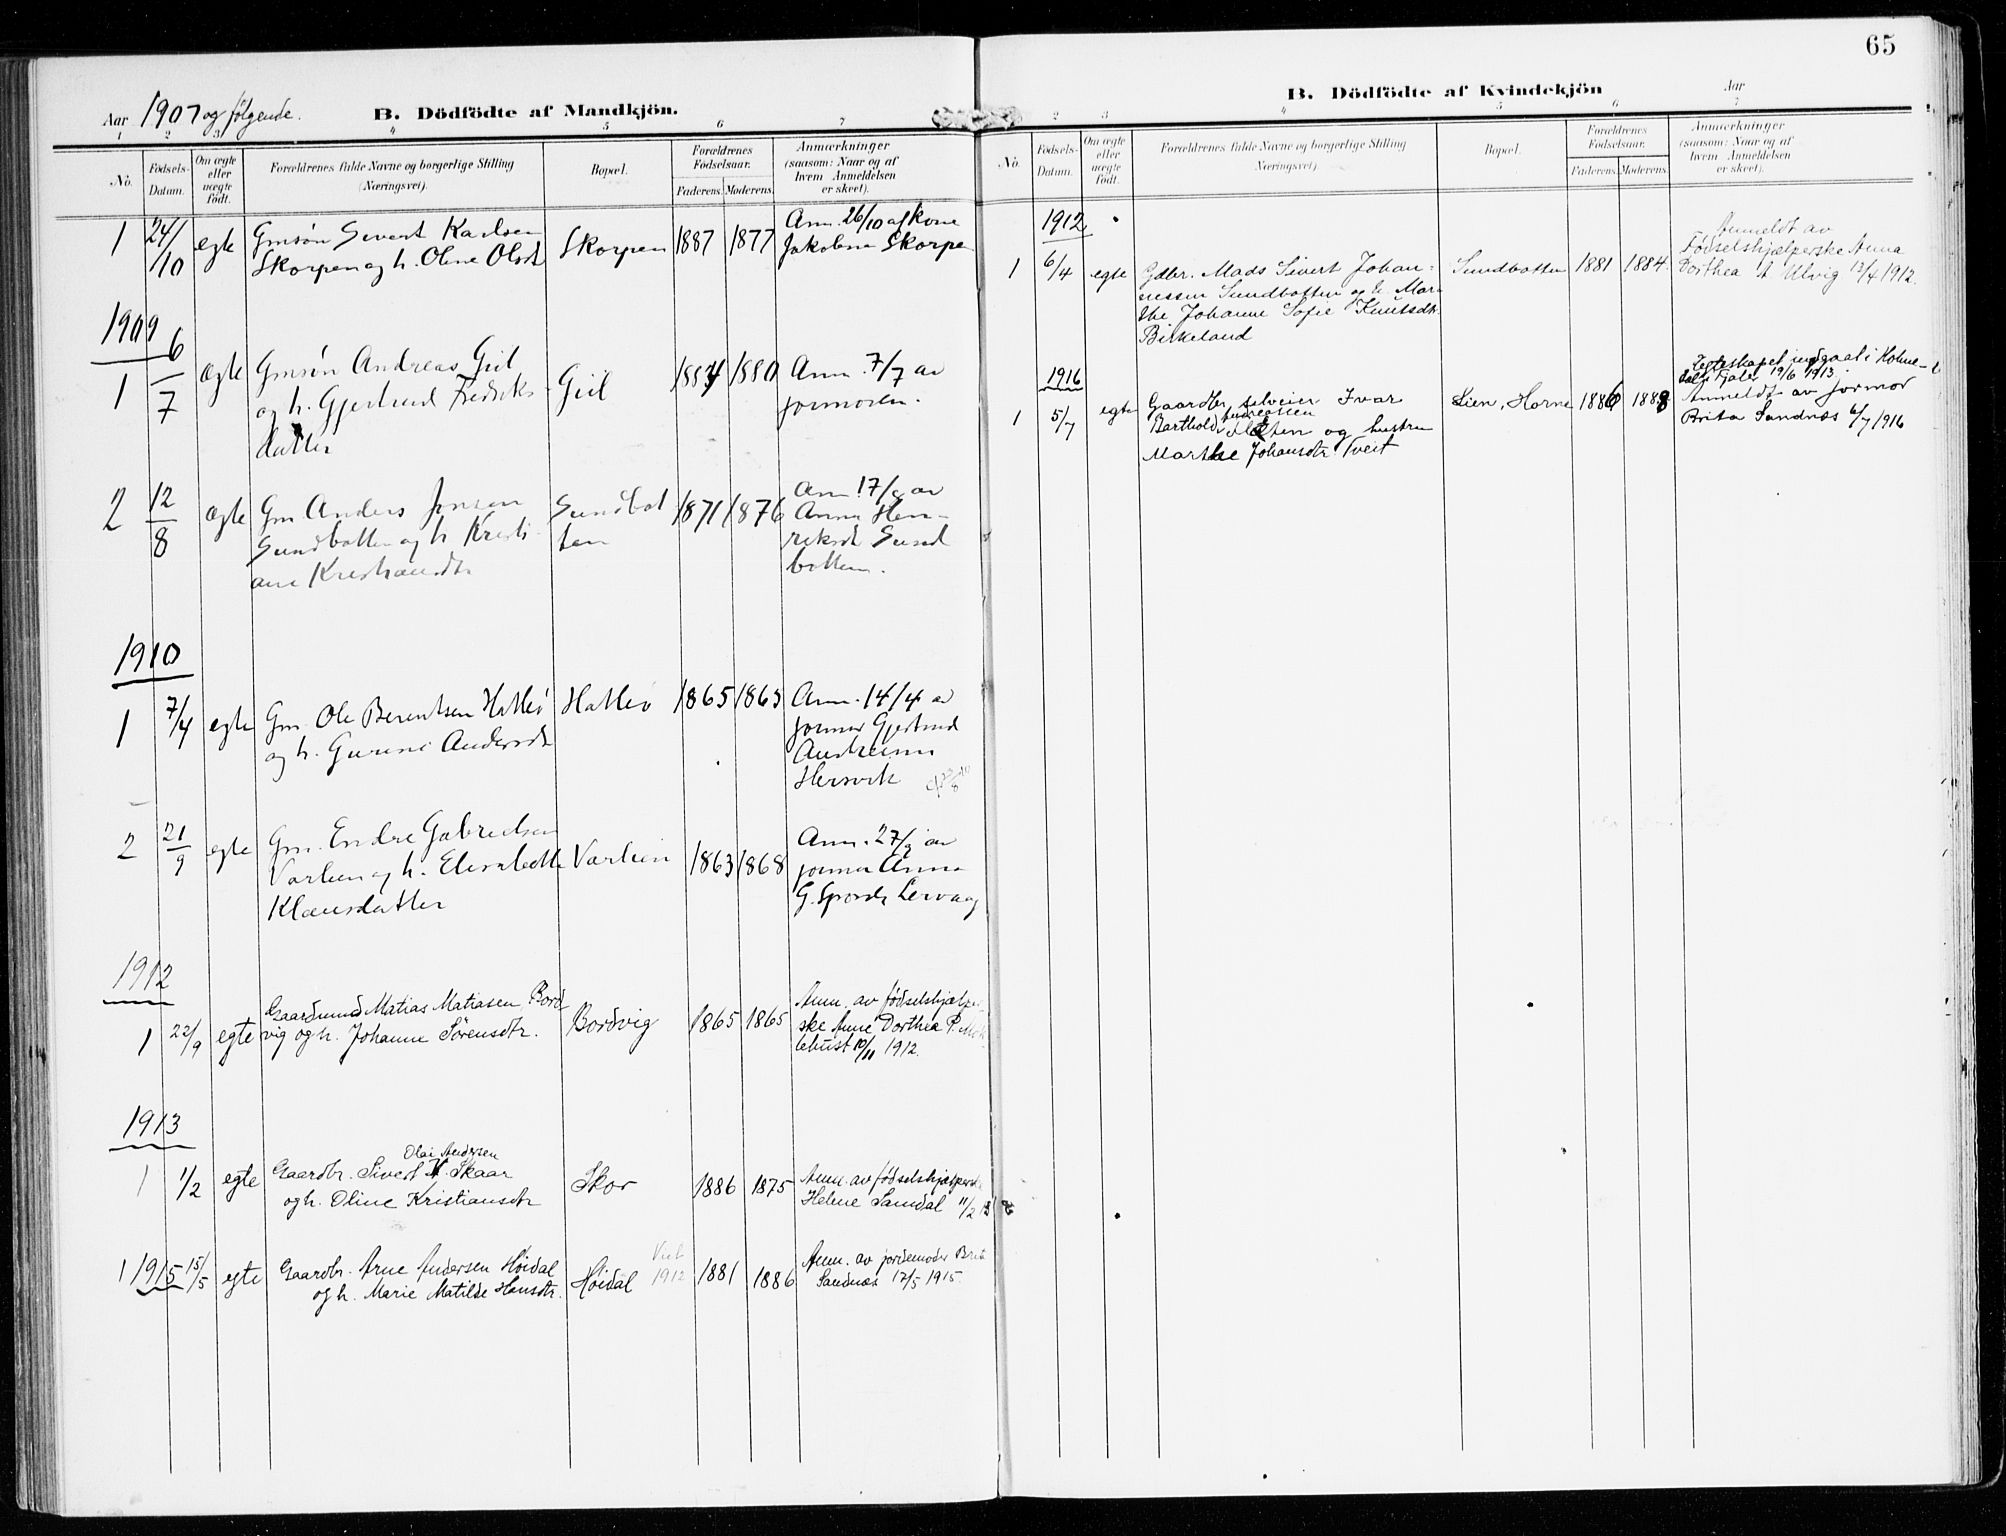 65
Aar 1907 og følgende.
B. Dödfödte af Mandkjön.
1 2 3 4 5 6 7
No.
Födsels-
Datum.
Om ægte
eller
uægte
födt.
Forældrenes fulde Navne og borgerlige Stilling
(Næringsvei).
Bopæl.
Forældrenes
Fødselsaar.
Faderens. Moderens.
Anmærkninger
(saasom: Naar og af
hvem Anmeldelsen
er skeet).
1 24/10 egte Gmsøn Sivert Karlsen
Skorpen og h. Oline Olsdt
Skorpen 1887 1877
Anm. 26/10 af kone
Jakobine Skorpe
1909
1 6/7 ægte Gmsøn Andreas Giil
og h. Gjertrud Fredriks
datter
Giil 1884 1880
Anm. 7/7 av
jormoren.
2 12/8 ægte Gm. Anders Jonsen
Sundbotten og h. Kristi
ane Kristiansdtr
Sundbot
ten
1871 1876
Anm. 17/8 av
Anna Hen-
riksdt Sund
botten.
1910
1 7/4 egte Gm. Ole Berentsen Hatlø
og h. Gurine Andersdt
Hatlø 1865 1865
Anm. 14/4 av
jormor Gjertrud
Hersvik
2 21/9 egte Gm. Endre Gabrielsen
Varlien og h. Elisabeth
Klausdatter
Varlien 1863 1868
Anm. 27/9 av
jormor Anna
Lervaag
1912
1 22/9 egte Gaardmand Matias Matiasen Bord
vig og h. Johanne Sörensdtr.
Bordvig 1865 1865
Anm. av fødselshjælper
ske Anne Dorthea P.
lehust 10/11 1912.
1913
Olai Andersen
1 1/2 egte Gaardbr. Sivert Skaar
og h. Oline Kristiansdtr
Skor 1886 1875
Anm. av fødselshjælperske
Helene Samdal 11/2 13
1 1915 15/5 egte Gaardbr. Arne Andersen Høidal
og h. Marie Matilde Hansdtr.
Høidal
1912
1881 1886
Anm. av jordemoder Brita
Sandnæs 17/5 1915.
B. Dödfödte af Kvindekjön
Aar
2 3 4 5 6 7
No.
Födsels-
Datum.
Om ægte
eller
uægte
födt.
Forældrenes fulde Navne og borgerlige Stilling
(Næringsvei).
Bopæl.
Forældrenes
Fødselsaar.
Faderens. Moderens.
Anmærkninger
(saasom: Naar og af
hvem Anmeldelsen
er skeet).
1912
1 6/4 egte Gdbr. Mads Sivert Johan-
nessen Sundbotten og h. Mar-
the Johanne Sofie Knutsdtr.
Birkeland
Sundbotten 1881 1884.
Anmeldt av
Fødselshjælperske Anna
Dorthea A Ulvig 13/4 1912.
1916
1 5/7 egte Gaardbr, selveier Ivar
Barthold Andreassen og hustru
Marthe Johansdtr. Tveit
Lien, Horne 1886 1888
Egteskapet indgaat i Holme-
dal, Fjaler 19/6 1913.
Anmeldt av jormor
Brita Sandnæs 6/7 1916